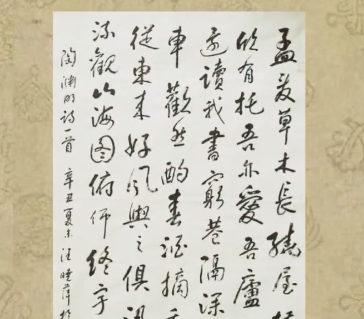 孟夏草木長繞屋樹
欣有托吾亦愛吾廬
還讀我書窮巷隔深
車歡然酌春酒摘
從東來好風與之俱
流觀山海圖俯仰終宇
陶淵明詩一首 辛丑夏末汪曉萍